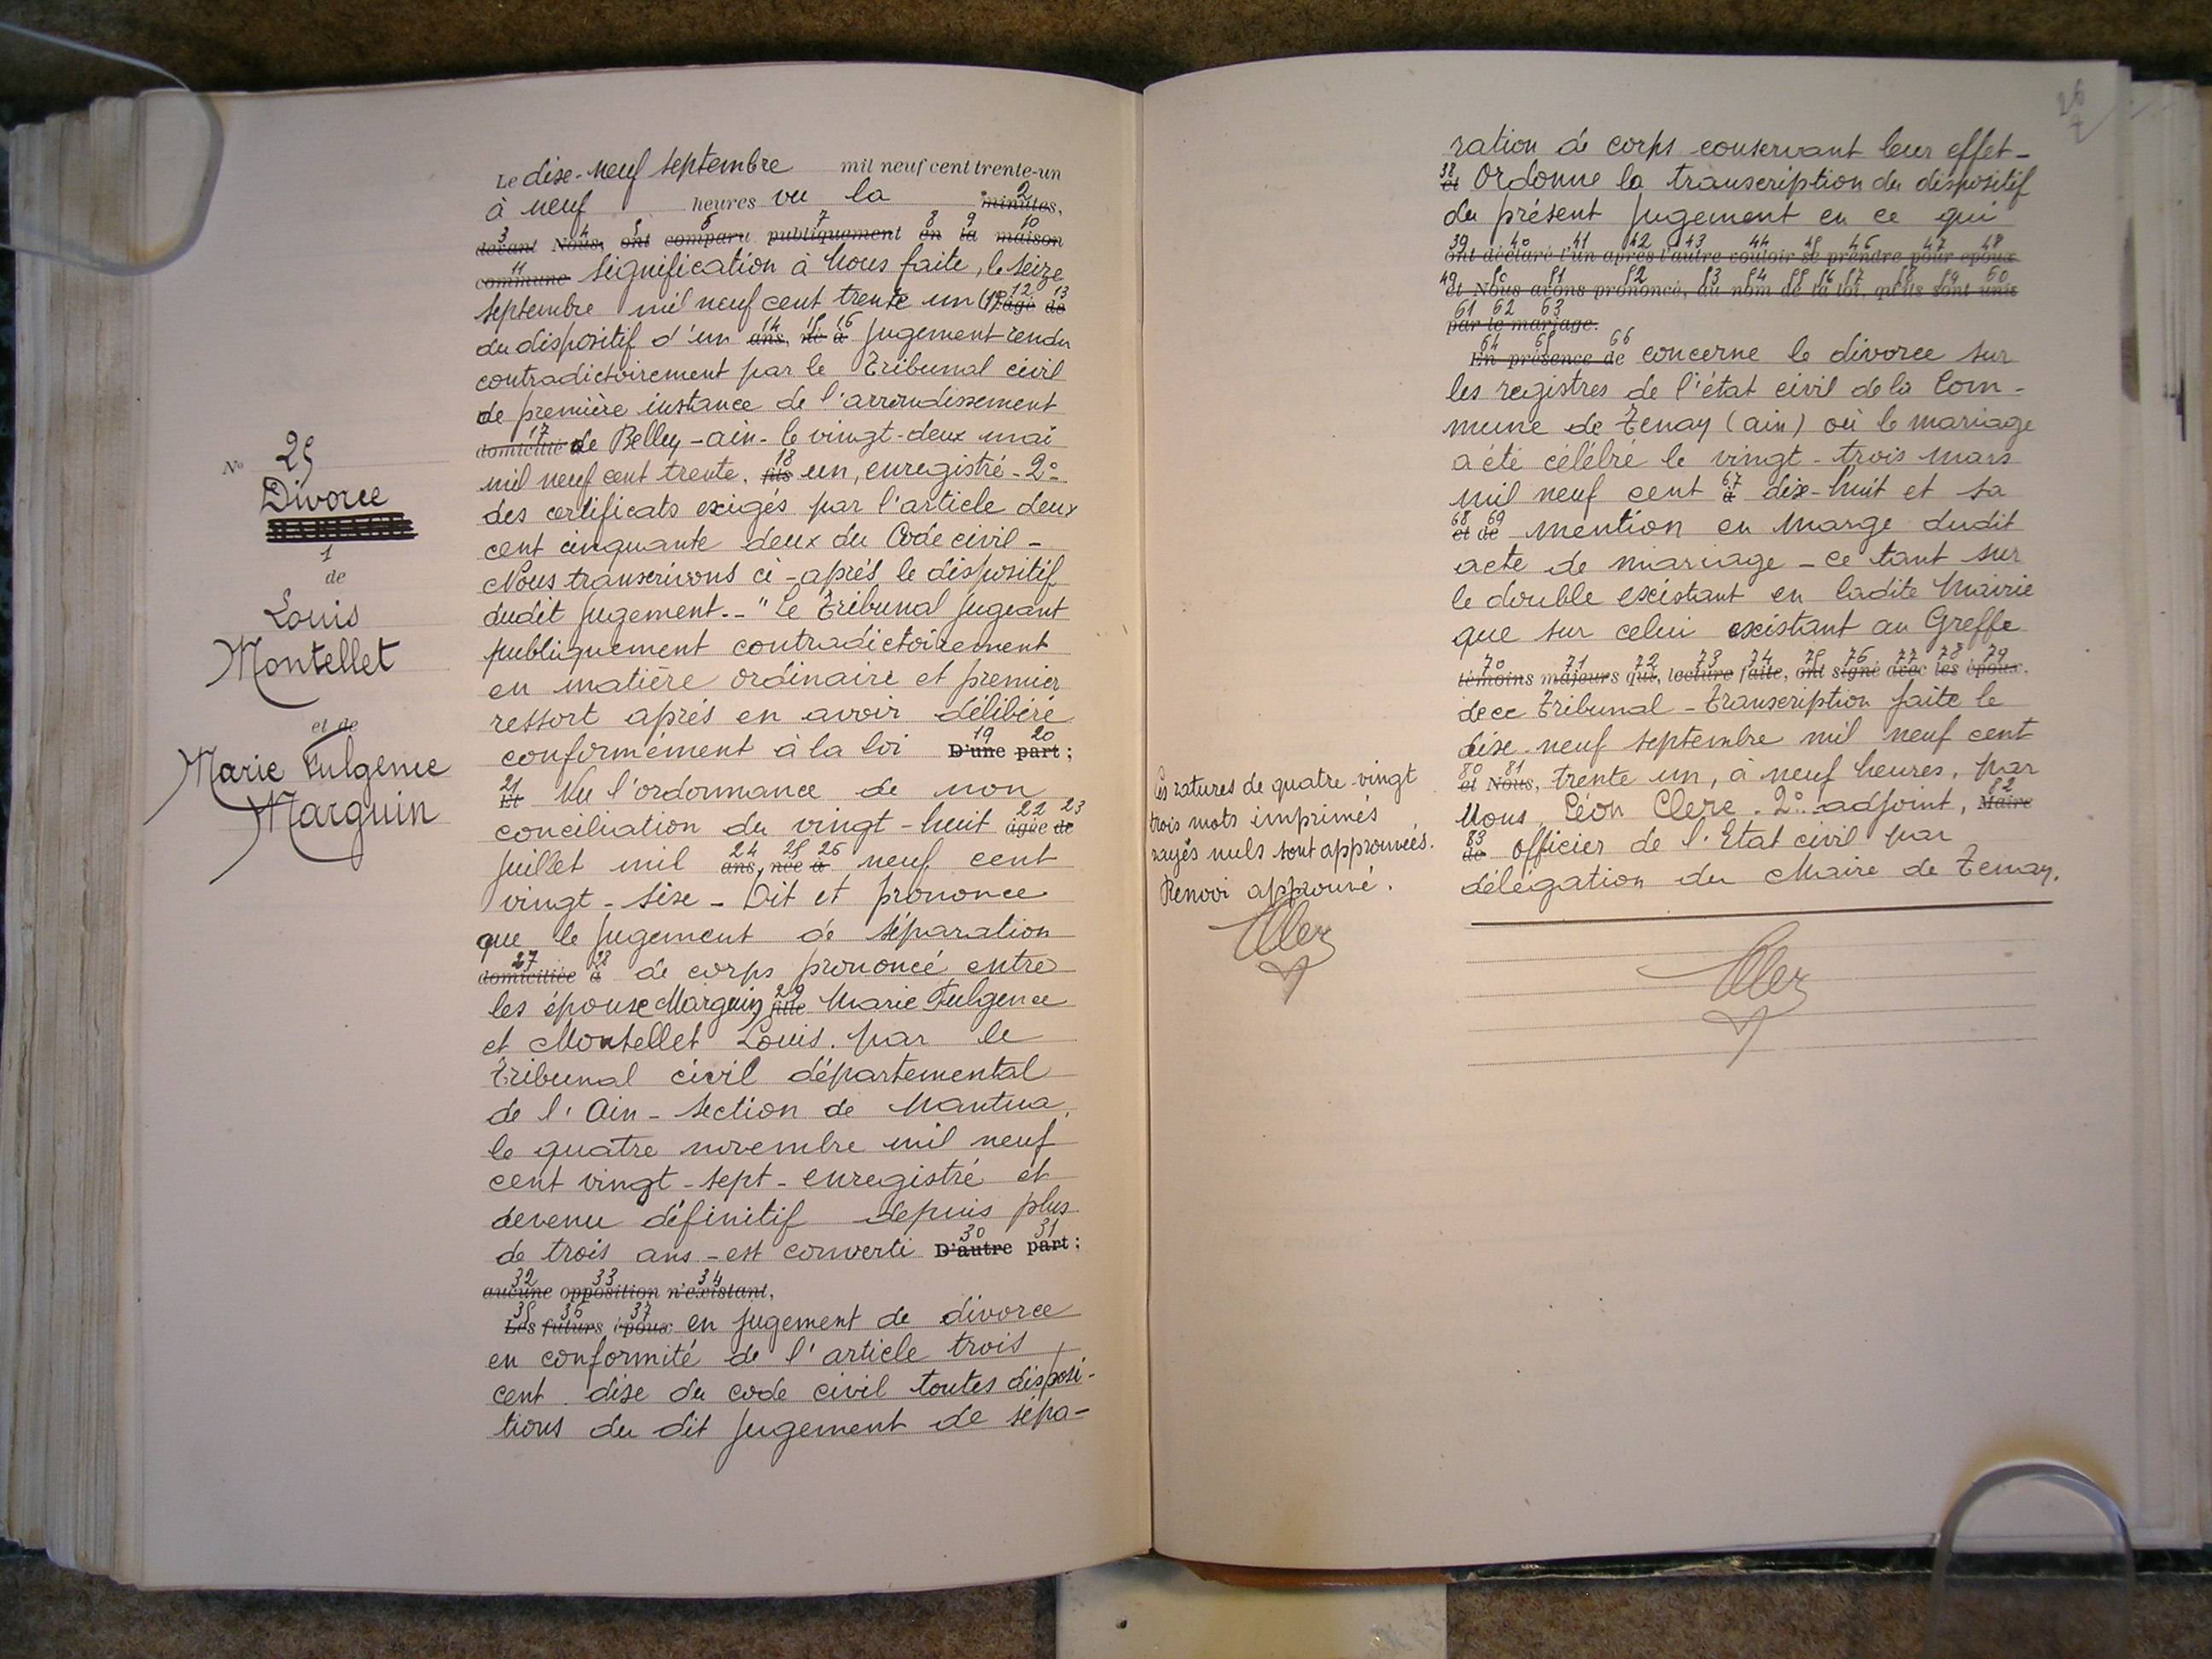 N° 25
Divorce
MARIAGE
1
de
Louis
Montellet
et de
Marie Fulgence
Marguin
Le dixe-neuf septembre mil neuf cent trente-un
à neuf heures vu la 2 minutes,
3 4 5 6 7 8 9 10
devant Nous, ont comparu publiquement en la maison
11
commune signification à Nous faite, le seize
septembre mil neuf cent trente un (1°) 12 13 âgé de
du dispositif d'un 14 15 16 ans, né à jugement rendu
contradictoirement par le Tribunal civil
de première instance de l'arrondissement
17 domicilié de Belley - ain - le vingt-deux mai
mil neuf cent trente. 18 fils un, enregistré - 2°
des certificats exigés par l'article deux
cent cinquante deux du Code civil -
Nous transcrivons ci-après le dispositif
dudit jugement. - "Le Tribunal jugeant
publiquement contradictoirement
en matière ordinaire et premier
ressort après en avoir délibéré
conformément à la loi 19 20 D'une part;
21 Et Vu l'ordonnance de non
conciliation du vingt-huit 22 23 âgée de
juillet mil 24 25 26 ans, née à neuf cent
vingt-sixe - Dit et prononce
que le jugement de séparation
27 28 domiciliée à de corps prononcé entre
les époux Marguin, 29 fille Marie Fulgence
et Montellet Louis. par le
Tribunal civil départemental
de l'Ain - section de Nantua,
le quatre novembre mil neuf
cent vingt-sept - enregistré et
devenu définitif depuis plus
de trois ans - est converti 30 31 D'autre part;
32 33 34
aucune opposition n'existant,
35 36 37
Les futurs époux en jugement de divorce
en conformité de l'article trois
cent dixe du code civil toutes disposi-
tions du dit jugement de sépa-
26
ration de corps conservant leur effet -
38 et Ordonne la transcription du dispositif
du présent jugement en ce qui
39 40 41 42 43 44 45 46 47 48
ont déclaré l'un après l'autre vouloir se prendre pour époux
49 50 51 52 53 54 55 56 57 58 59 60
et Nous avons prononcé, au nom de la loi, qu'ils sont unis
61 62 63
par le mariage.
64 65 66
En présence de concerne le divorce sur
les registres de l'état civil de la Com-
mune de Tenay (ain) où le mariage
a été célébré le vingt-trois mars
mil neuf cent 67 à dix-huit et sa
68 69 et de mention en marge dudit
acte de mariage - ce tant sur
le double existant en ladite Mairie
que sur celui existant au Greffe
70 71 72 73 74 75 76 77 78 79
témoins majeurs qui, lecture faite, ont signé avec les époux.
de ce Tribunal - Transcription faite le
dixe-neuf septembre mil neuf cent
80 81 et Nous, trente un, à neuf heures, par
Nous Léon Clerc. 2° adjoint, 82 Maire
83 de officier de l'Etat civil par
délégation du Maire de Tenay.
Les ratures de quatre vingt
trois mots imprimés
rayés nuls sont approuvées.
Renvoi approuvé.
Clerc
Clerc